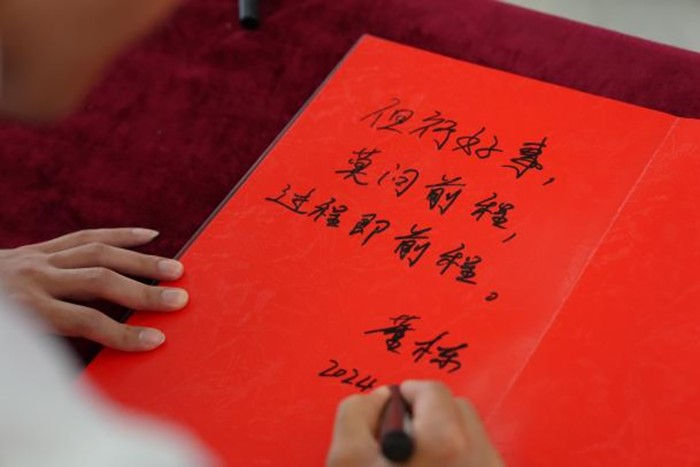 但行好事，
莫问前程，
过程即前程。
董栋
2024